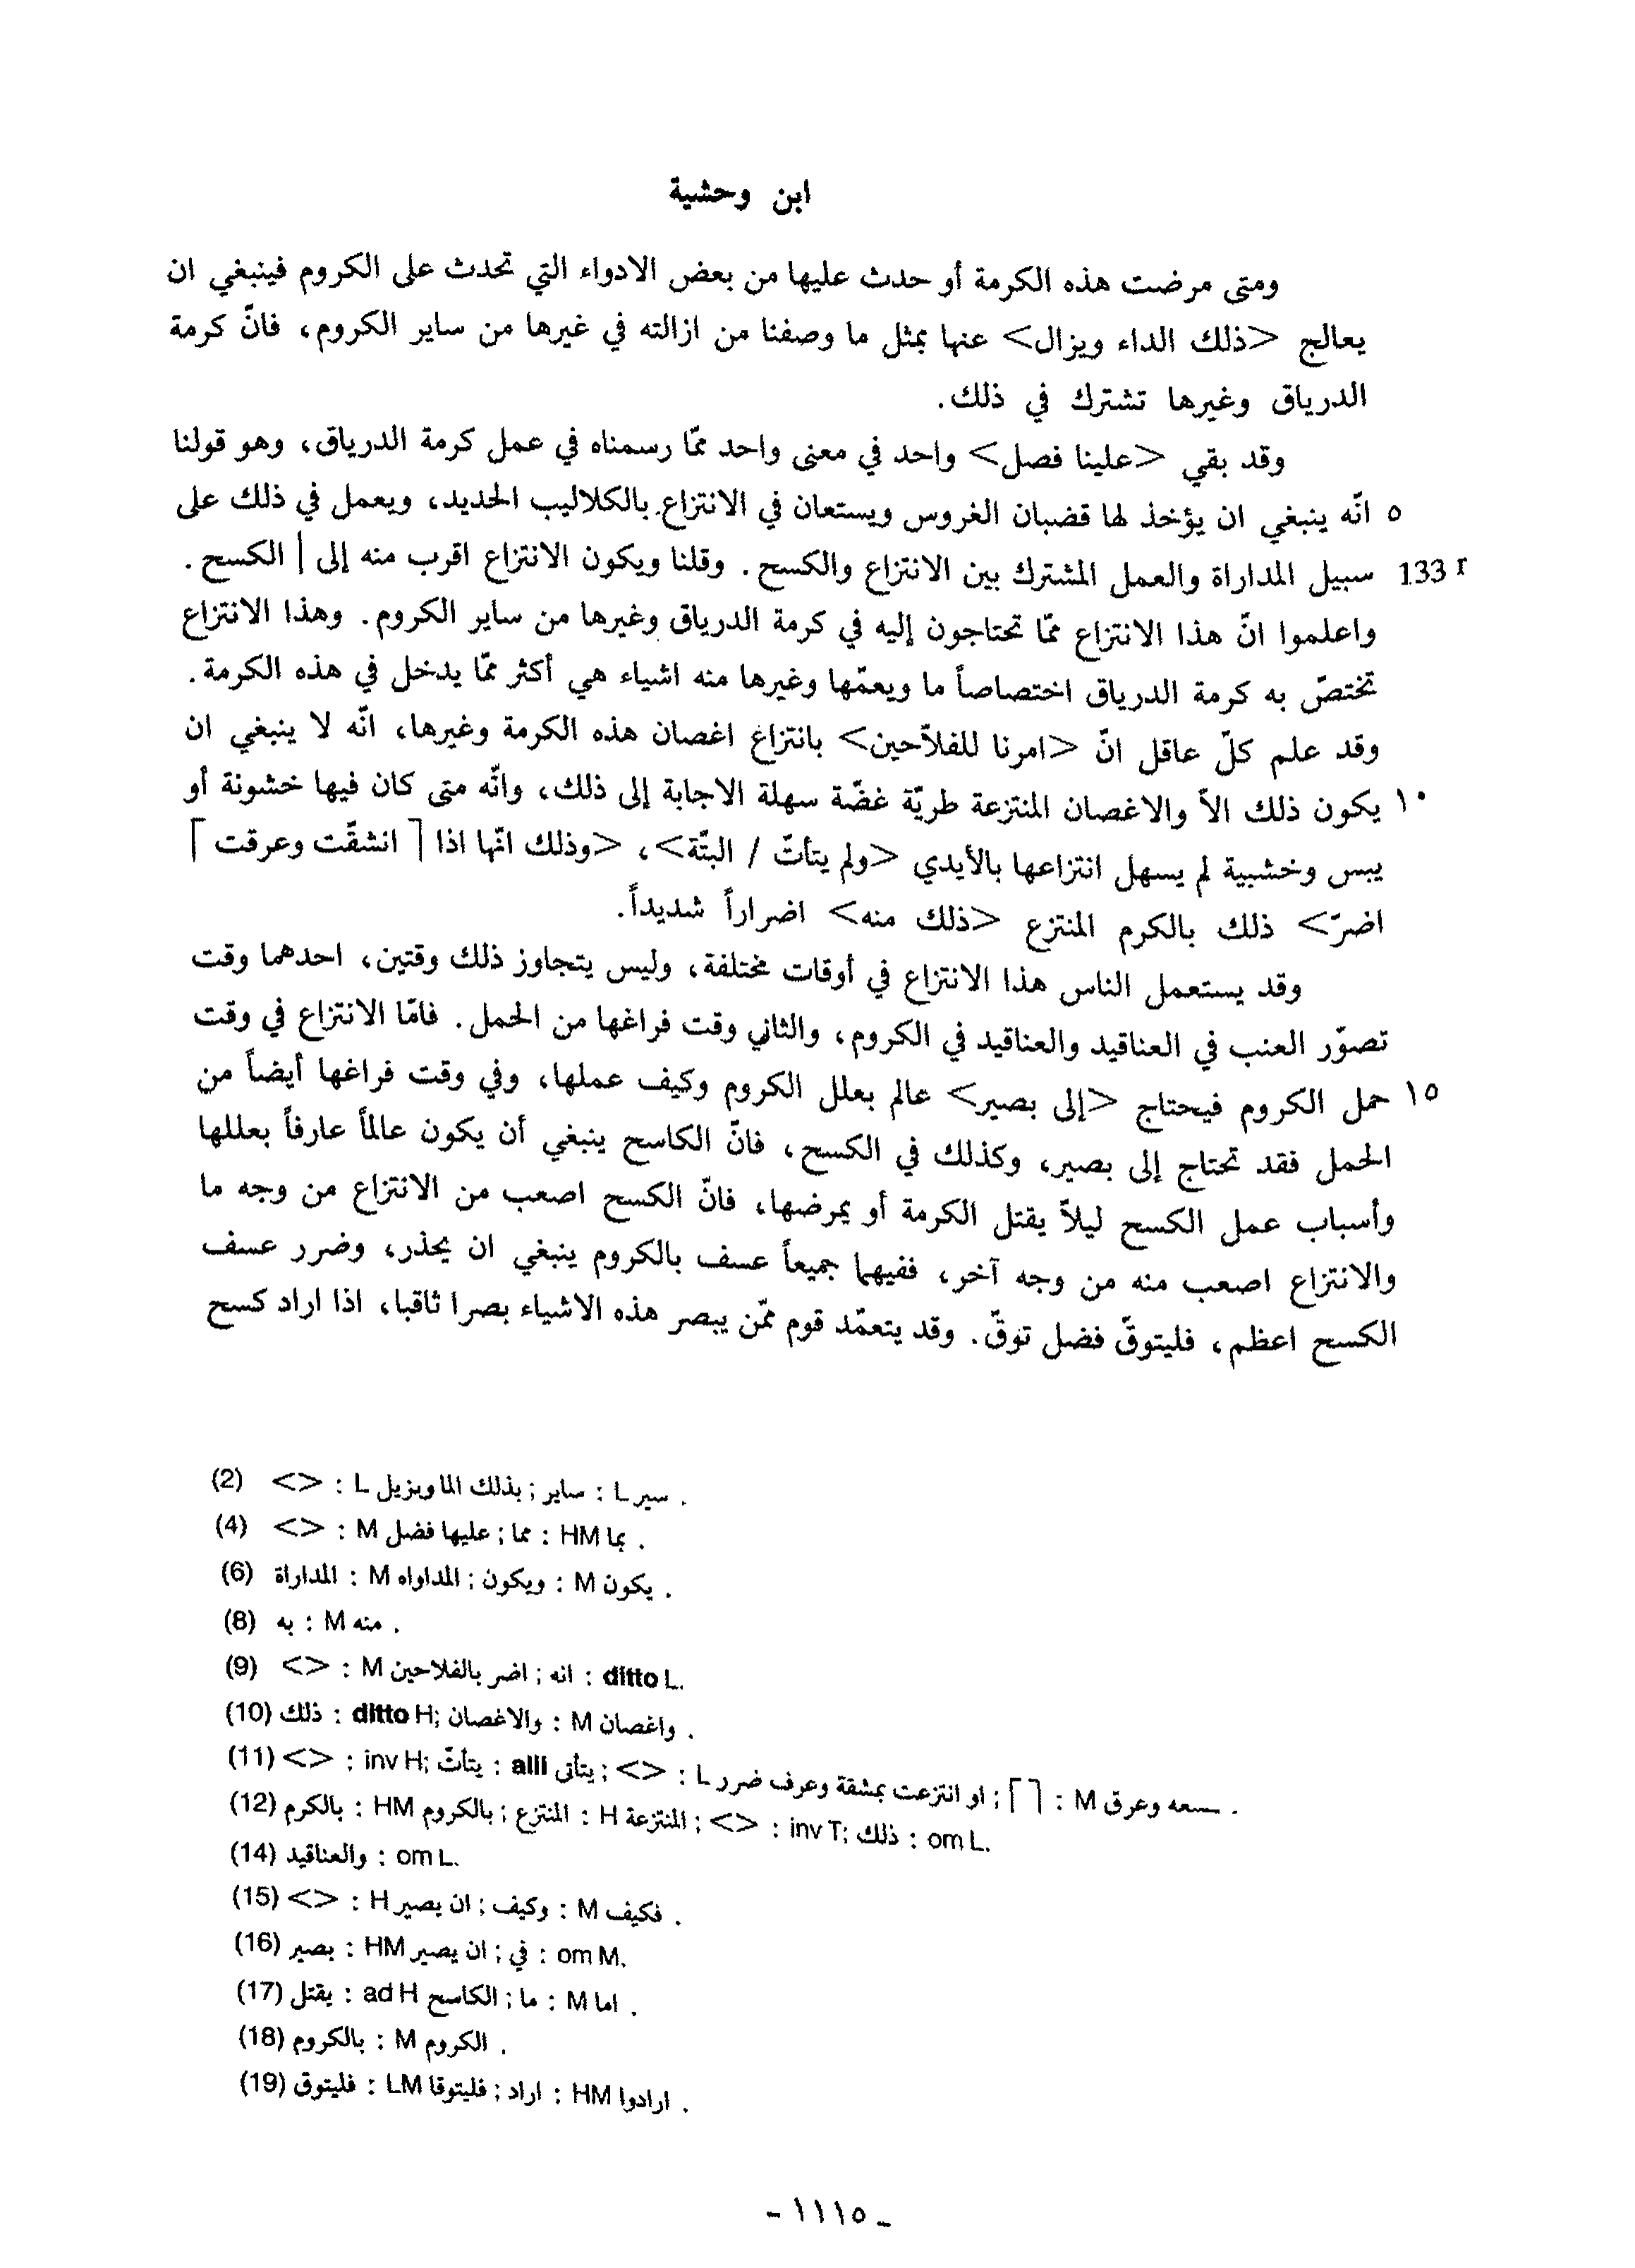 ابن وحشية
ومتى مرضت هذه الكرمة أو حدث عليها من بعض الادواء التي تحدث على الكروم فينبغي ان
يعالج <ذلك الداء ويزال> عنها بمثل ما وصفنا من ازالته في غيرها من ساير الكروم، فانّ كرمة
الدرياق وغيرها تشترك في ذلك.
وقد بقي <علينا فصل> واحد في معنى واحد ممّا رسمناه في عمل كرمة الدرياق، وهو قولنا
٥ انّه ينبغي ان يؤخذ لها قضبان الغروس ويستعان في الانتزاع بالكلاليب الحديد، ويعمل في ذلك على
133 r سبيل المداراة والعمل المشترك بين الانتزاع والكسح. وقلنا ويكون الانتزاع اقرب منه إلى | الكسح.
واعلموا انّ هذا الانتزاع ممّا تحتاجون إليه في كرمة الدرياق وغيرها من ساير الكروم. وهذا الانتزاع
تختصّ به كرمة الدرياق اختصاصاً ما ويعمّها وغيرها منه اشياء هي أكثر ممّا يدخل في هذه الكرمة.
وقد علم كلّ عاقل انّ <امرنا للفلاّحين> بانتزاع اغصان هذه الكرمة وغيرها، انّه لا ينبغي ان
١٠ يكون ذلك الاّ والاغصان المنتزعة طريّة غضّة سهلة الاجابة إلى ذلك، وانّه متى كان فيها خشونة أو
يبس وخشبية لم يسهل انتزاعها بالأيدي <ولم يتأتّ / البتّة>، <وذلك انّها اذا ⌈ انشقّت وعرقت ⌉
اضرّ> ذلك بالكرم المنتزع <ذلك منه> اضراراً شديداً.
وقد يستعمل الناس هذا الانتزاع في أوقات مختلفة، وليس يتجاوز ذلك وقتين، احدهما وقت
تصوّر العنب في العناقيد والعناقيد في الكروم، والثاني وقت فراغها من الحمل. فامّا الانتزاع في وقت
١٥ حمل الكروم فيحتاج <إلى بصير> عالم بعلل الكروم وكيف عملها، وفي وقت فراغها أيضاً من
الحمل فقد تحتاج إلى بصير، وكذلك في الكسح، فانّ الكاسح ينبغي أن يكون عالماً عارفاً بعللها
وأسباب عمل الكسح ليلاّ يقتل الكرمة أو يمرضها، فانّ الكسح اصعب من الانتزاع من وجه ما
والانتزاع اصعب منه من وجه آخر، ففيهما جميعاً عسف بالكروم ينبغي ان يحذر، وضرر عسف
الكسح اعظم، فليتوقّ فضل توقّ. وقد يتعمّد قوم ممّن يبصر هذه الاشياء بصرا ثاقبا، اذا اراد كسح
(2) <> : L بذلك الما ويزيل ; ساير : L سير .
(4) <> : M عليها فضل ; مما : HM بما .
(6) المداراة : M المداواه ; ويكون : M يكون .
(8) به : M منه .
(9) <> : M اضر بالفلاحين ; انه : ditto L.
(10) ذلك : ditto H; والاغصان : M واغصان .
(11) <> : inv H; يتأتّ : alli يتأتى ; <> : L او انتزعت بمشقة وعرف ضرر ; ⌈ ⌉ : M سعه وعرق .
(12) بالكرم : HM بالكروم ; المنتزع : H المنتزعة ; <> : inv T; ذلك : om L.
(14) والعناقيد : om L.
(15) <> : H ان يصير ; وكيف : M فكيف .
(16) بصير : HM ان يصير ; في : om M.
(17) يقتل : ad H الكاسح ; ما : M اما .
(18) بالكروم : M الكروم .
(19) فليتوق : LM فليتوقا ; اراد : HM ارادوا .
- ١١١٥ -